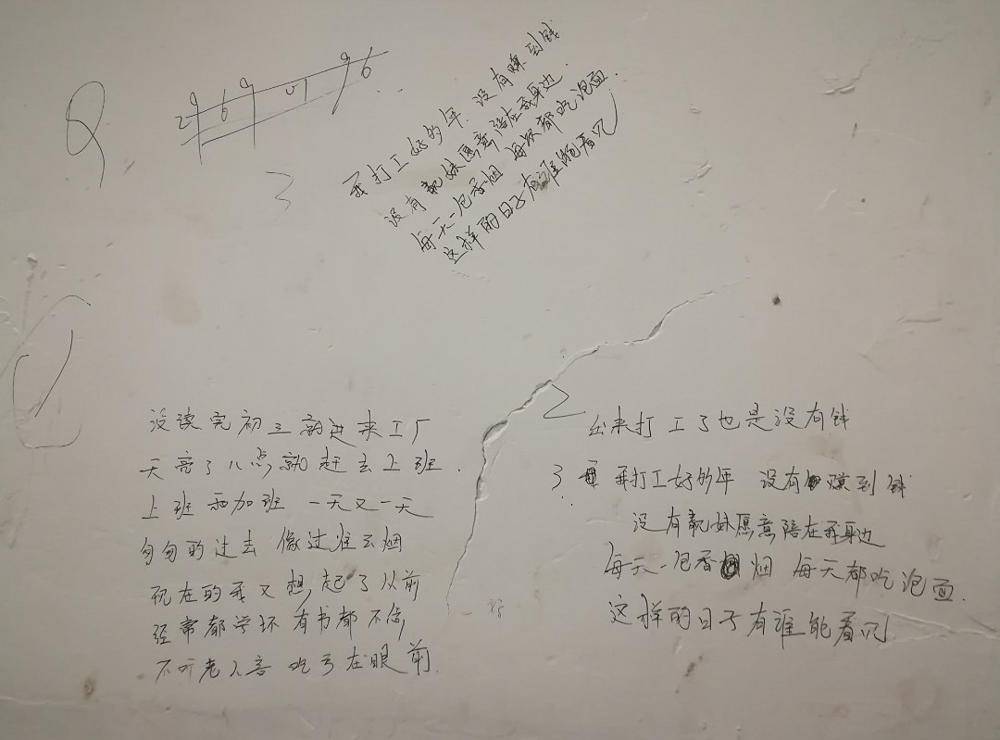 269 5196
3
我打工好多年.没有赚到钱
没有靓妹愿意陪在我身边.
每天一包香烟 每顿都吃泡面.
这样的日子有谁能看见
没读完初三就进来工厂
天亮了八点就赶去上班.
上班和加班 一天又一天
匆匆的过去 像过往云烟
现在的我又想起了从前
经常都学坏 有书都不念
不听老人言 吃亏在眼前.
2 出来打工了也是没有钱
3 我打工好多年 没有赚到钱
没有靓妹愿意陪在我身边
每天一包香烟 每天都吃泡面.
这样的日子有谁能看见